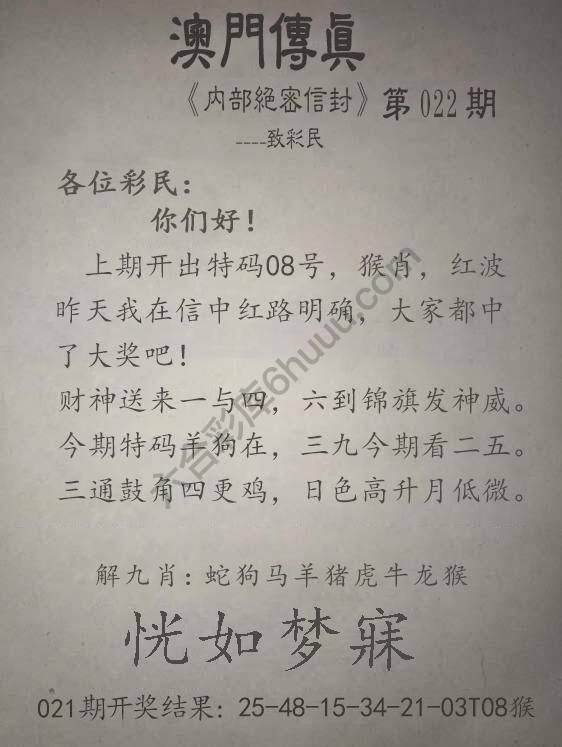 澳門傳眞
《内部絕密信封》第022期
----致彩民
各位彩民：
你们好！
上期开出特码08号，猴肖，红波
昨天我在信中红路明确，大家都中
了大奖吧！
财神送来一与四，六到锦旗发神威。
今期特码羊狗在，三九今期看二五。
三通鼓角四更鸡，日色高升月低微。
解九肖：蛇狗马羊猪虎牛龙猴
恍如梦寐
021期开奖结果：25-48-15-34-21-03T08猴
六合彩库6huuu.com